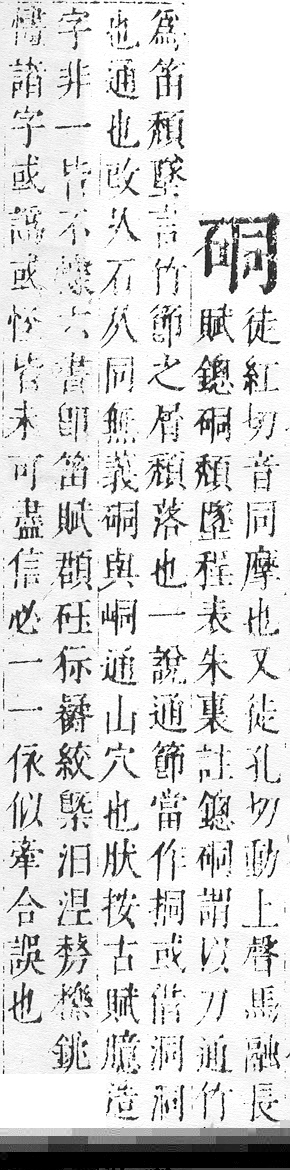 硐
徒紅切音同摩也又徒孔切動上聲馬融長
賦鏓硐頹墜程表朱裏註鏓硐謂以刀通竹
為笛頹墜言竹節之屑頹落也一說通節當作挏或偕洞洞
也通也改从石从同無義硐與峒通山穴也肰按古賦臆造
字非一皆不蝶六書卽笛賦頵砡䋈絞㮣汨湼櫟銚
諧字或譌或怪皆未可盡信必一一依似牽合誤也